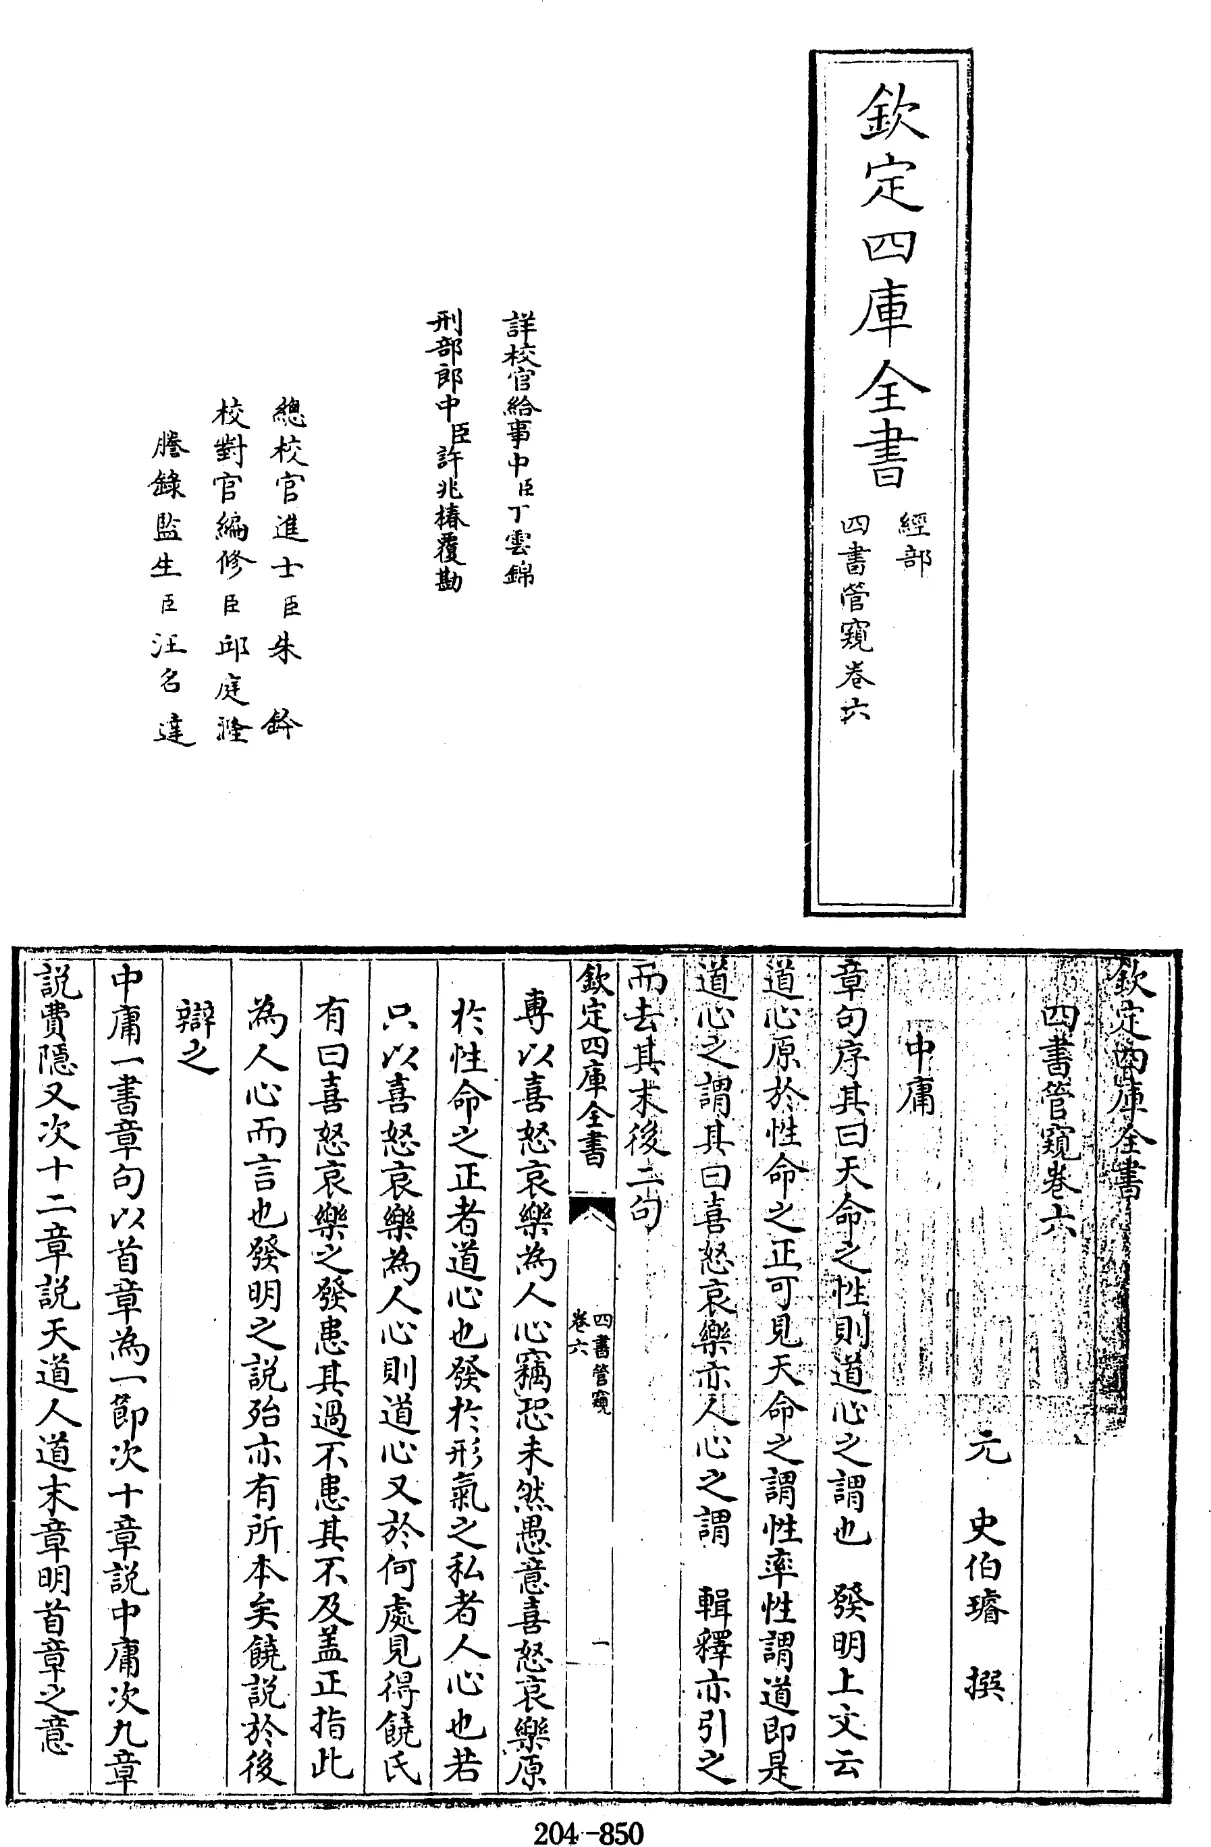 欽定四庫全書
經部
四書管窺卷六
詳校官給事中臣丁雲錦
刑部郎中臣許兆椿覆勘
總校官進士臣朱鈐
校對官編修臣邱庭漋
謄錄監生臣汪名達
欽定四庫全書
四書管窺卷六
元 史伯璿 撰
中庸
章句序其曰天命之性則道心之謂也 發明上文云
道心原於性命之正可見天命之謂性率性謂道即是
道心之謂其曰喜怒哀樂亦人心之謂 輯釋亦引之
而去其末後二句
欽定四庫全書
四書管窺
卷六
一
專以喜怒哀樂為人心竊恐未然愚意喜怒哀樂原
於性命之正者道心也發於形氣之私者人心也若
只以喜怒哀樂為人心則道心又於何處見得饒氏
有曰喜怒哀樂之發患其過不患其不及蓋正指此
為人心而言也發明之說殆亦有所本矣饒說於後
辯之
中庸一書章句以首章為一節次十章説中庸次九章
説費隱又次十二章説天道人道末章明首章之意
204-850